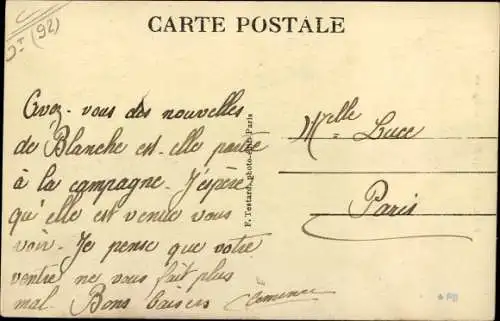 DT (92)
CARTE POSTALE
Avez-vous des nouvelles
de Blanche est-elle partie
à la campagne. J'espère
qu'elle est venue vous
voir. Je pense que votre
ventre ne vous fait plus
mal. Bons baisers Clemence
F. Testard, photo-édit. Paris
Melle Luce
Paris